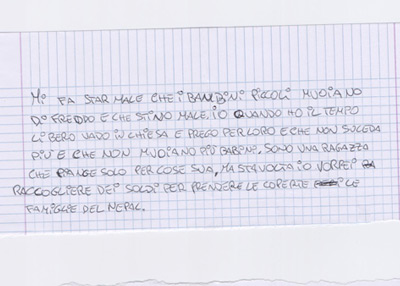 MI FA STAR MALE CHE I BAMBINI PICCOLI MUOIANO
DI FREDDO E CHE STINO MALE. IO QUANDO HO IL TEMPO
LIBERO VADO IN CHIESA E PREGO PER LORO E CHE NON SUCEDA
PIÙ E CHE NON MUOIANO PIÙ BABINI. SONO UNA RAGAZZA
CHE PIANGE SOLO PER COSE SUA, MA STAVOLTA IO VORREI
RACCOGLIERE DEI SOLDI PER PRENDERE LE COPERTE LE
FAMIGLIE DEL NEPAL.